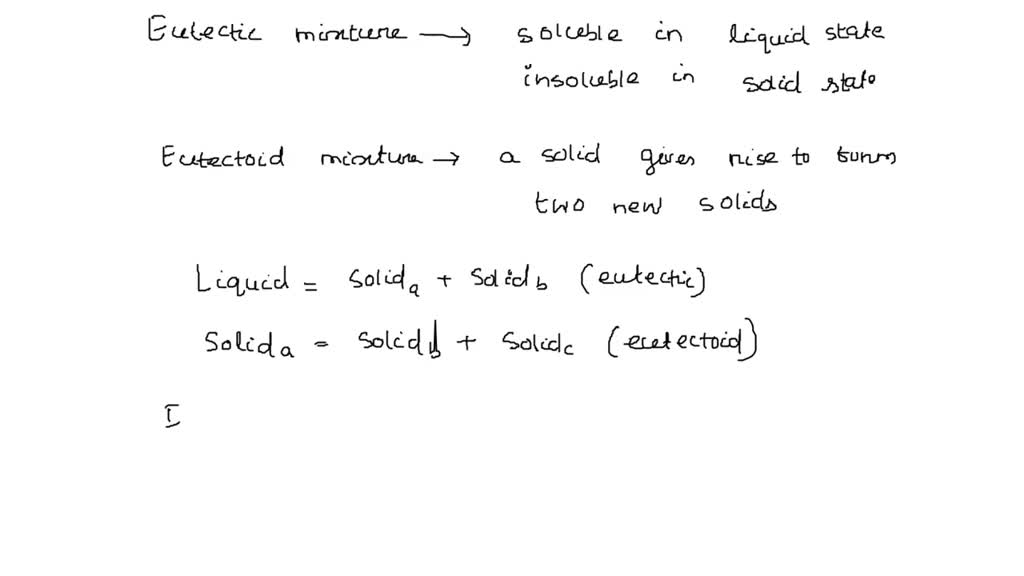 Eutectic mixture → soluble in liquid state
insoluble in solid state
Eutectoid mixture → a solid gives rise to
two new solids
Liquid = Solid a + Solid b (eutectic)
Solid a = Solid b + Solid c (eutectoid)
I